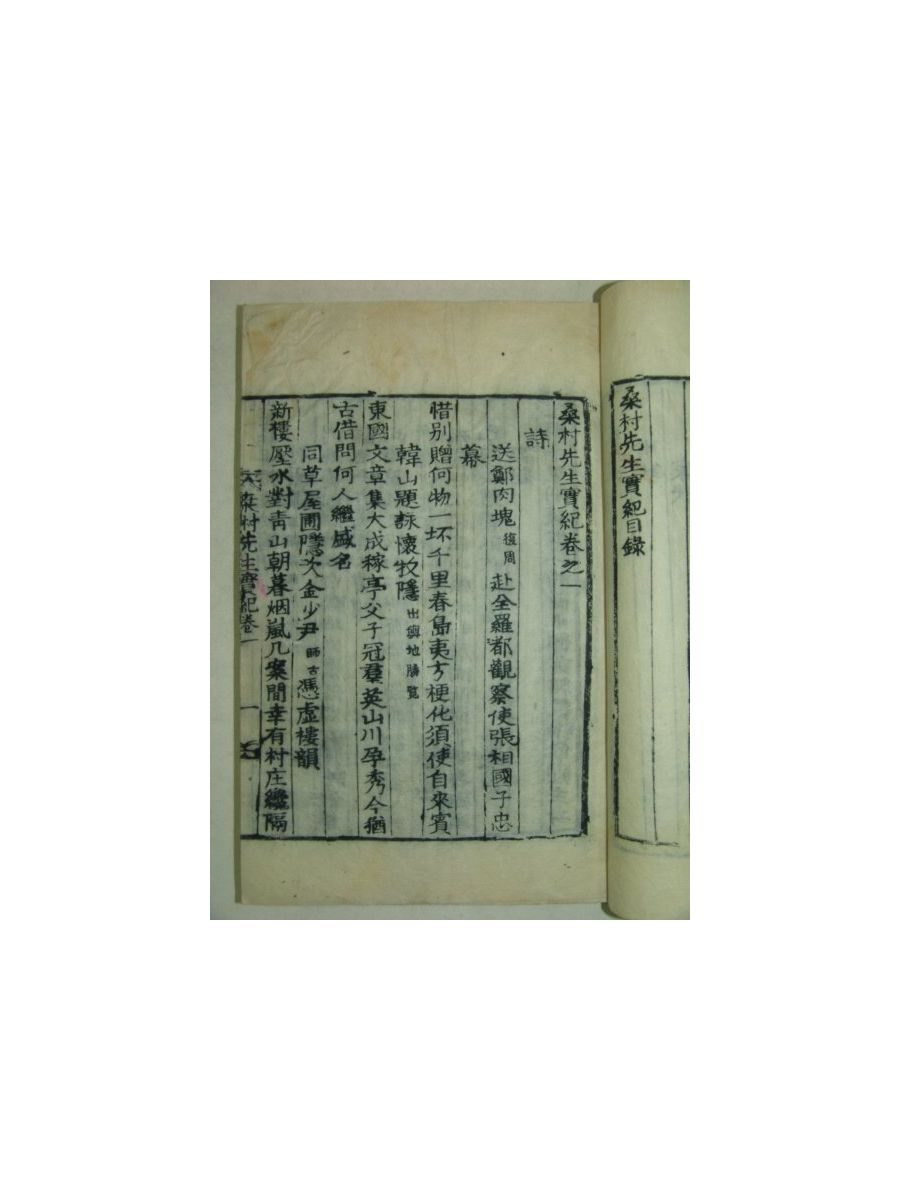 桑村先生實紀目錄
桑村先生實紀卷之一
詩
送鄭肉塊復周赴全羅都觀察使張相國子忠
幕
惜別贈何物一坏千里春島夷方梗化須使自來賓
韓山題詠懷牧隱出輿地勝覧
東國文章集大成稼亭父子冠羣英山川孕秀今猶
古借問何人繼盛名
同草屋圃隱次金少尹師古憑虛樓韻
新樓壓水對靑山朝暮烟嵐几案間幸有村庄纔隔
桑村先生實紀卷一
一